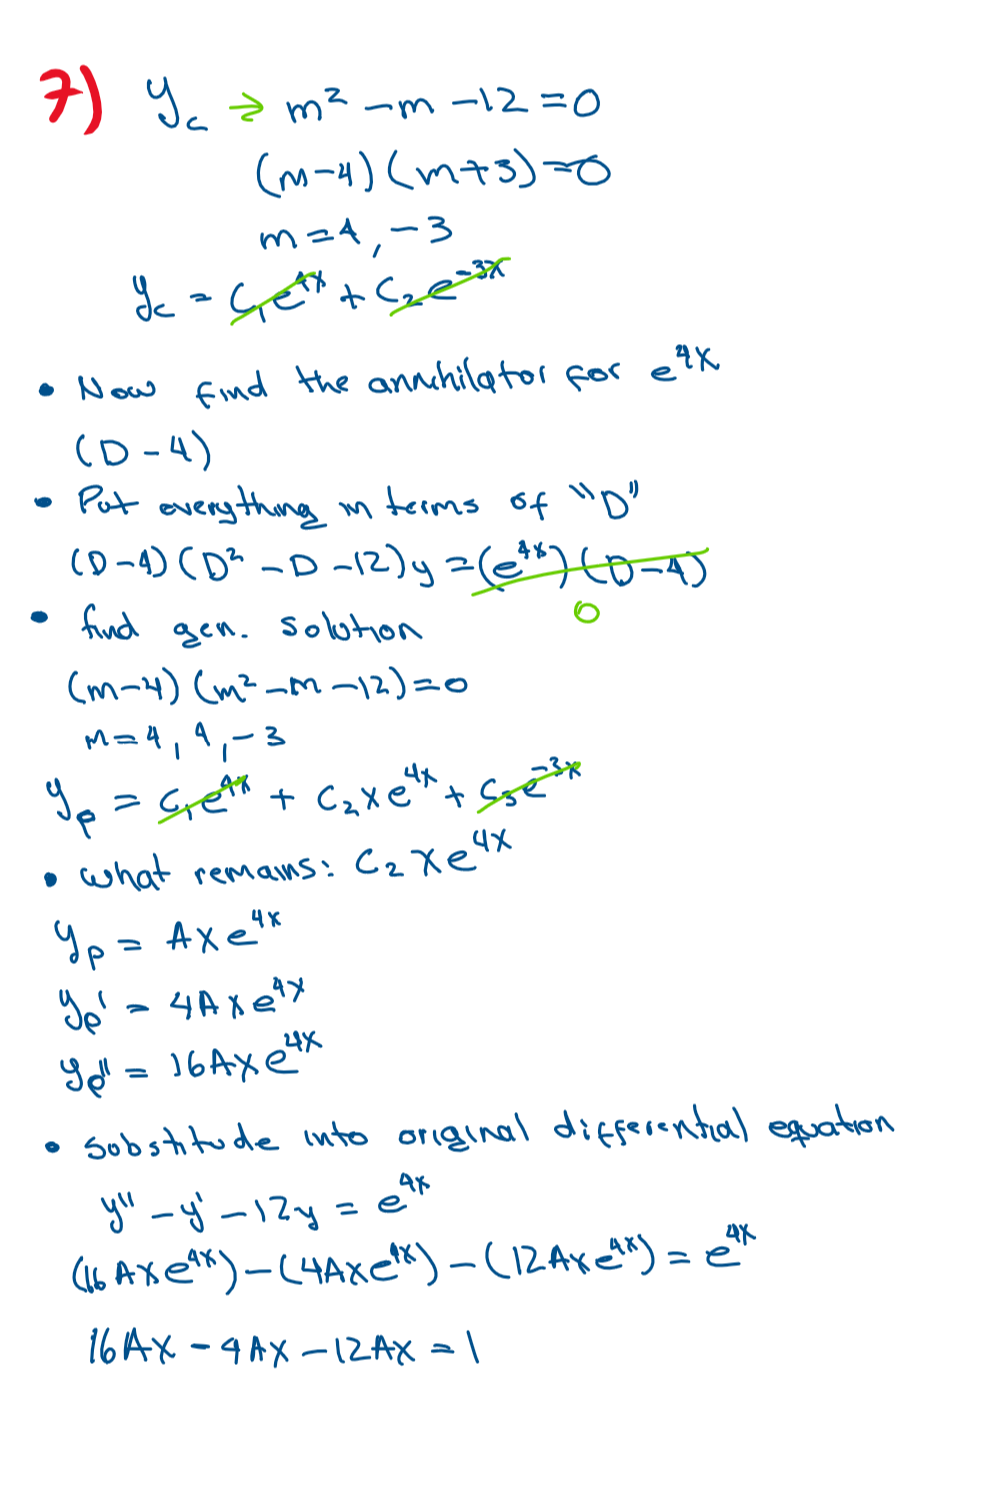 7) y_c → m² - m - 12 = 0
(m-4)(m+3)=0
m=4, -3
y_c = c₁e^{4x} + c₂e^{-3x}
• Now find the annihilator for e^{4x}
(D-4)
• Put everything in terms of "D"
(D-4)(D² - D - 12)y = (e^{4x})(D-4)
0
• find gen. solution
(m-4)(m² - m - 12)=0
m=4, 4, -3
y_p = c₁e^{4x} + c₂xe^{4x} + c₃e^{-3x}
• what remains: c₂xe^{4x}
y_p = Axe^{4x}
y_p' = 4Axe^{4x}
y_p'' = 16Axe^{4x}
• Substitude into original differential equation
y'' - y' - 12y = e^{4x}
(16Axe^{4x}) - (4Axe^{4x}) - (12Axe^{4x}) = e^{4x}
16Ax - 4Ax - 12Ax = 1